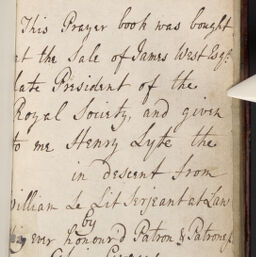 This Prayer book was bought
at the Sale of James West Esqr.
late President of the
Royal Society, and given
to me Henry Lyte the
in descent from
William Le Lit Serjeant at Law
by
my ever honour'd Patron & Patroness